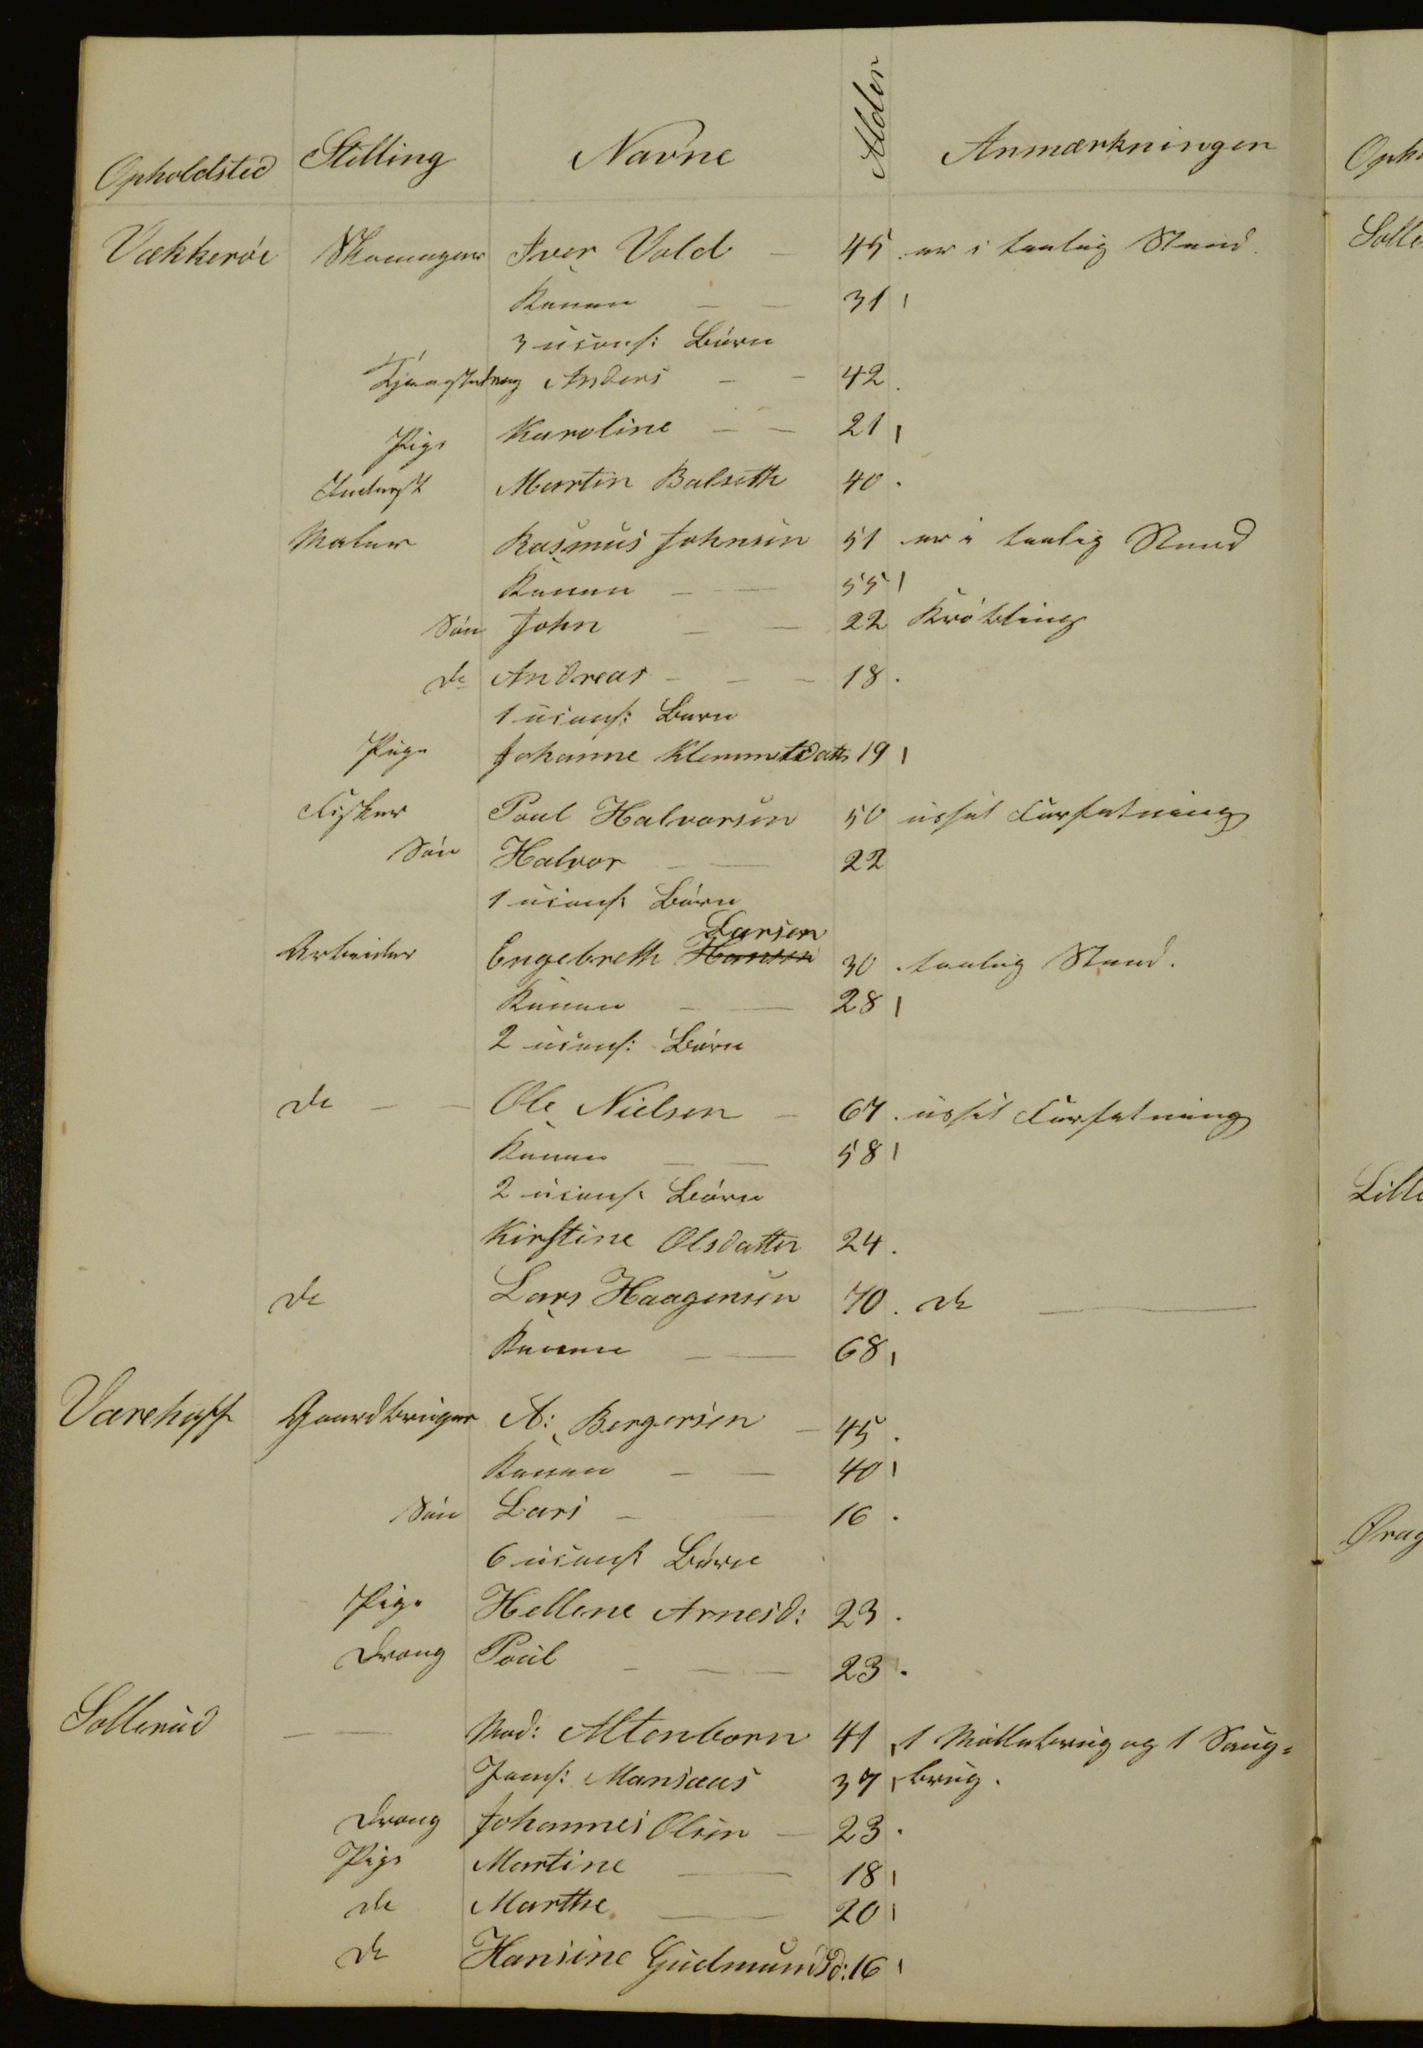 Opholdsted Stilling Navne Alder Anmærkninger
Vækkerøe Skomager Iver Vold 45. er i taalig Stand.
Konen 31
3 uconf: Børn
Tjenestedreng Anders 42.
Pige Karoline 21
Inderst Martin Balseth 40.
Maler Rasmus Johnsen 51 er i taalig Stand
Konen 55
Søn John 22 Krøbling
do Andreas 18.
1 uconf: Barn
Pige Johanne Klemmetsdatr 19
Fisker Poul Halvorsen 50 ussel Forfatning
Søn Halvor 22
1 uconf: Børn
Larsen
Arbeider Engebreth Hansen 30. taalig Stand.
Konen 28
2 uconf: Børn
do Ole Nielsen 67. ussel Forfatning
Konen 58
2 uconf: Børn
Kirstine Olsdatter 24.
do Lars Haagensen 70. do
Konen 68
Værehaff Gaardbruger A: Bergersen 45.
Konen 40
Søn Lars 16.
6 uconf: Børn
Pige Hellene Arnesd: 23.
Dreng Poul 23.
Sollerud Mad: Altenborn 41 1 Møllebrug og 1 Saug=
Jomf: Mansaas 37 brug.
Dreng Johannes Olsen 23.
Pige Martine 18
do Marthe 20
do Hansine Gudmundsd: 16
Opho
Solle
Lille
Ørag